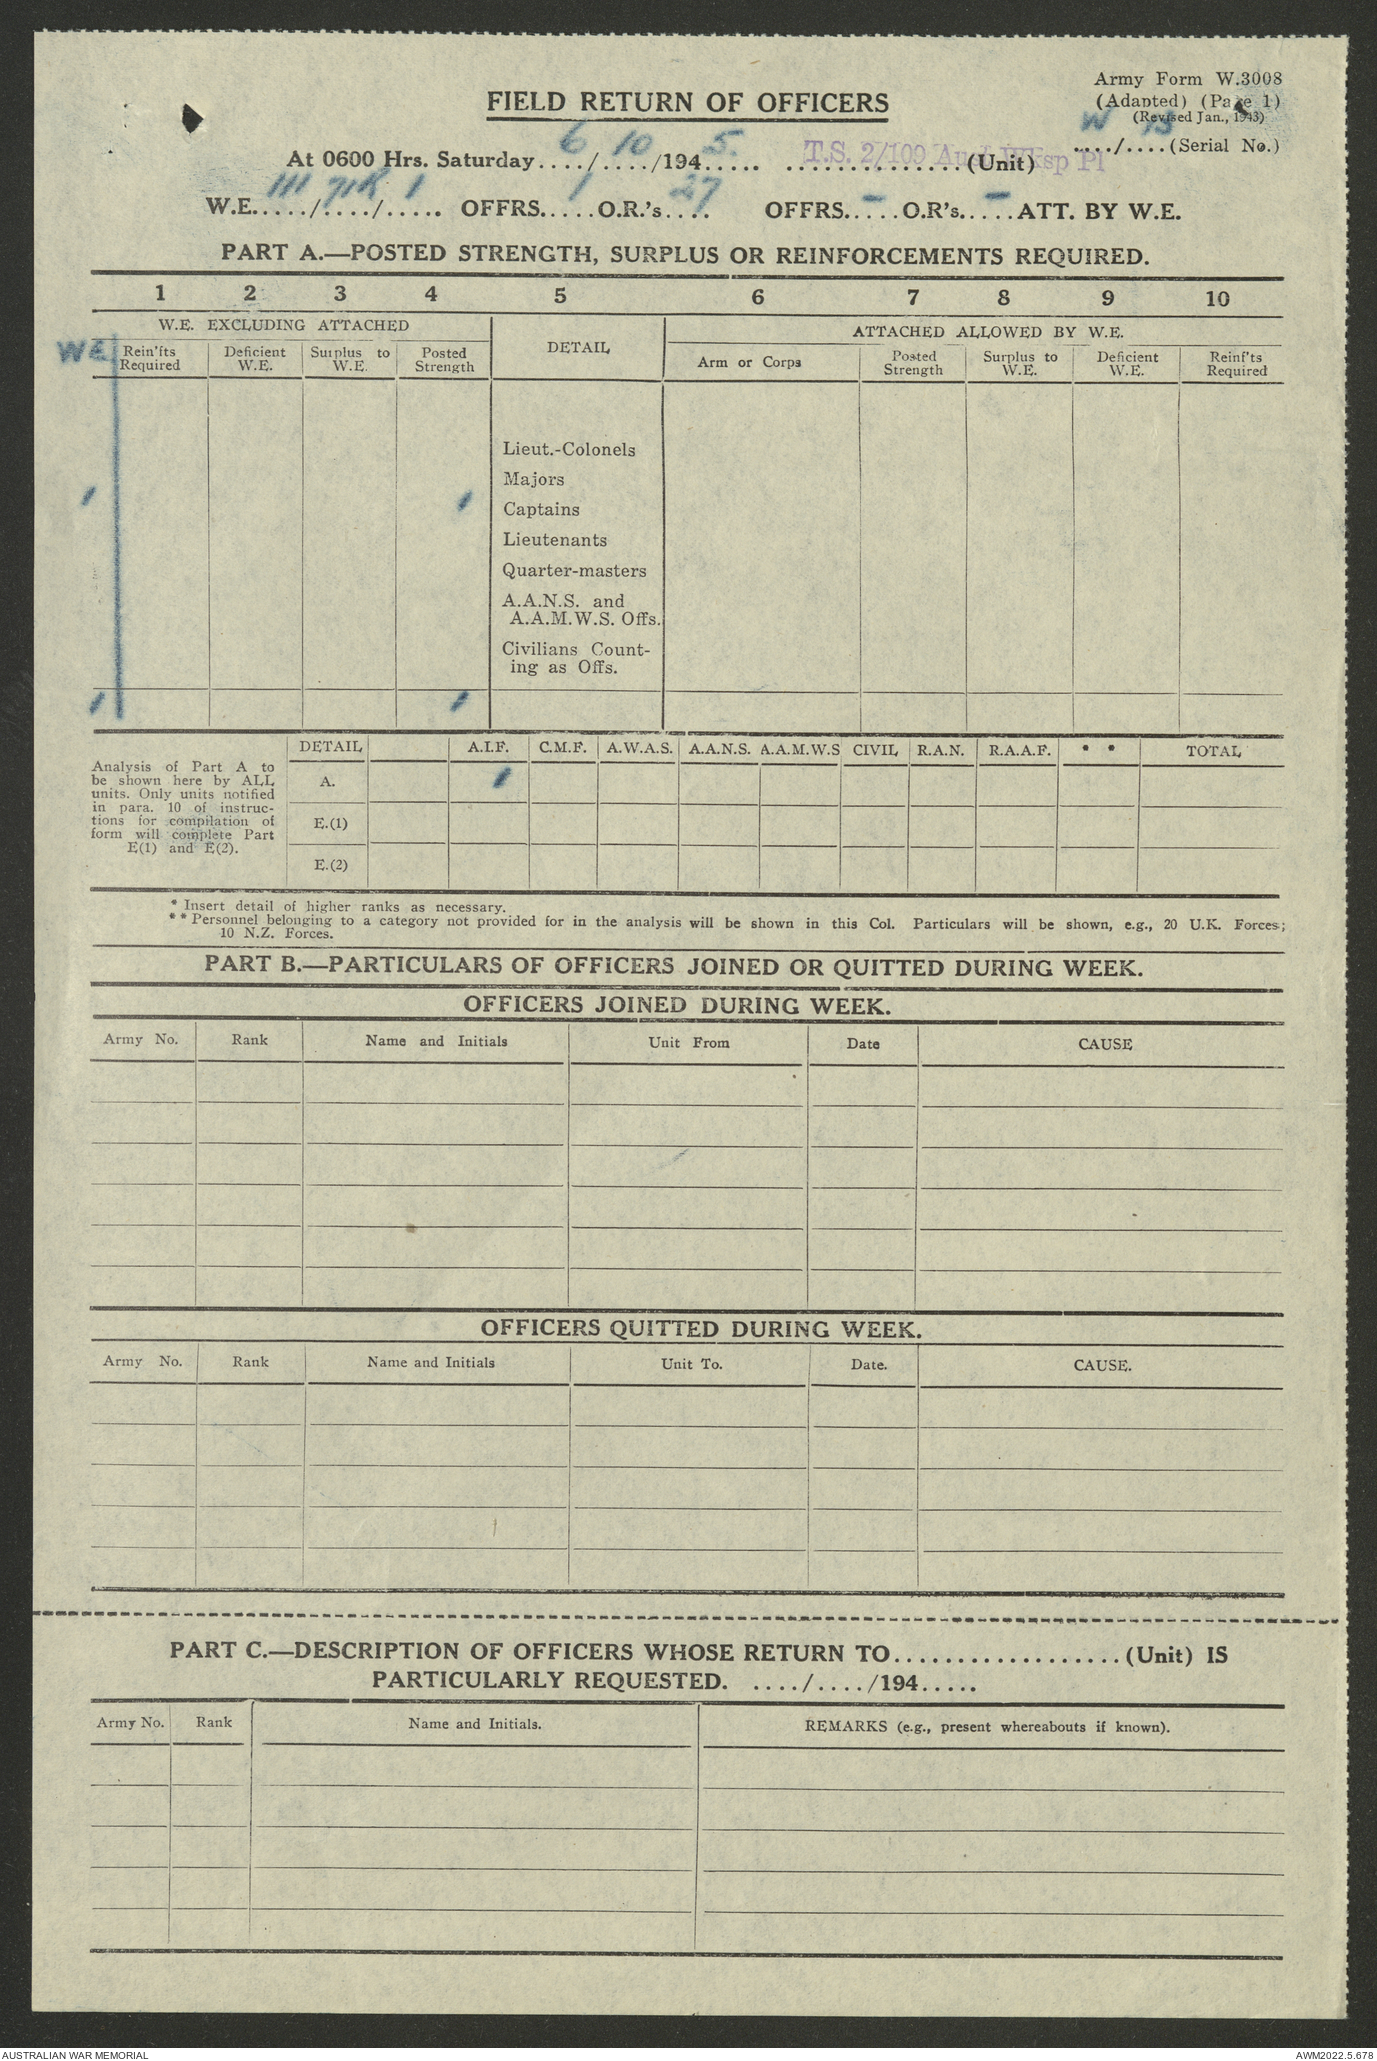 Army Form W.3008
FIELD RETURN OF OFFICERS
(Adapted) (Page 1)
(Revised Jan., 1943)
W 13
..../....(Serial No.)
At 0600 Hrs. Saturday 6/10/1945 T.S. 2/109 Aust Wksp Pl (Unit)
W.E. 111/71K/1 OFFRS. 1 O.R.'s 27 OFFRS. - O.R's. - ATT. BY W.E.
PART A.—POSTED STRENGTH, SURPLUS OR REINFORCEMENTS REQUIRED.
1 2 3 4 5 6 7 8 9 10
W.E. EXCLUDING ATTACHED DETAIL ATTACHED ALLOWED BY W.E.
WE Rein'fts Required Deficient W.E. Surplus to W.E. Posted Strength Arm or Corps Posted Strength Surplus to W.E. Deficient W.E. Reinf'ts Required
Lieut.-Colonels
Majors
1 1 Captains
Lieutenants
Quarter-masters
A.A.N.S. and
A.A.M.W.S. Offs.
Civilians Count-
ing as Offs.
1 1
DETAIL A.I.F. C.M.F. A.W.A.S. A.A.N.S. A.A.M.W.S CIVIL R.A.N. R.A.A.F. * * TOTAL
Analysis of Part A to
be shown here by ALL
units. Only units notified
in para. 10 of instruc-
tions for compilation of
form will complete Part
E(1) and E(2).
A. 1
E.(1)
E.(2)
* Insert detail of higher ranks as necessary.
** Personnel belonging to a category not provided for in the analysis will be shown in this Col. Particulars will be shown, e.g., 20 U.K. Forces;
10 N.Z. Forces.
PART B.—PARTICULARS OF OFFICERS JOINED OR QUITTED DURING WEEK.
OFFICERS JOINED DURING WEEK.
Army No. Rank Name and Initials Unit From Date CAUSE
OFFICERS QUITTED DURING WEEK.
Army No. Rank Name and Initials Unit To. Date. CAUSE.
PART C.—DESCRIPTION OF OFFICERS WHOSE RETURN TO..................(Unit) IS
PARTICULARLY REQUESTED. ..../..../194.....
Army No. Rank Name and Initials. REMARKS (e.g., present whereabouts if known).
AUSTRALIAN WAR MEMORIAL AWM2022.5.678